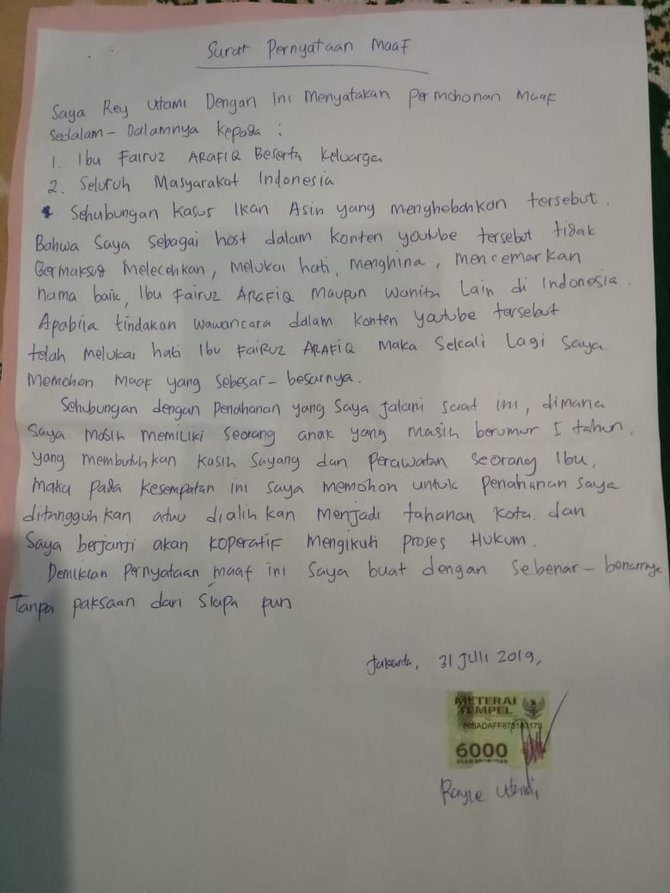 Surat Pernyataan Maaf
Saya Rey Utami Dengan Ini Menyatakan Permohonan Maaf
Sedalam - Dalamnya kepada :
1. Ibu Fairuz ARAFIQ Beserta Keluarga
2. Seluruh Masyarakat Indonesia
Sehubungan Kasus Ikan Asin yang menghebohkan tersebut.
Bahwa Saya Sebagai host dalam konten youtube tersebut tidak
Bermaksud Melecehkan, Melukai hati, Menghina, mencemarkan
nama baik, Ibu Fairuz ARAFIQ Maupun Wanita Lain di Indonesia.
Apabila tindakan wawancara dalam konten youtube tersebut
telah melukai hati Ibu FAIRUZ ARAFIQ Maka Sekali Lagi Saya
Memohon Maaf yang sebesar - besarnya.
Sehubungan dengan Penahanan yang Saya jalani saat ini, dimana
Saya Masih Memiliki Seorang anak yang masih berumur 1 tahun,
yang membutuhkan Kasih Sayang dan Perawatan Seorang Ibu,
maka pada kesempatan ini saya memohon untuk Penahanan Saya
ditangguhkan atau dialihkan Menjadi tahanan Kota. dan
Saya berjanji akan KOPeratif Mengikuti Proses Hukum.
Demikian Pernyataan maaf ini Saya buat dengan Sebenar - benarnya
Tanpa paksaan dari Siapa pun
Jakarta, 31 Juli 2019,
METERAI
TEMPEL
6000